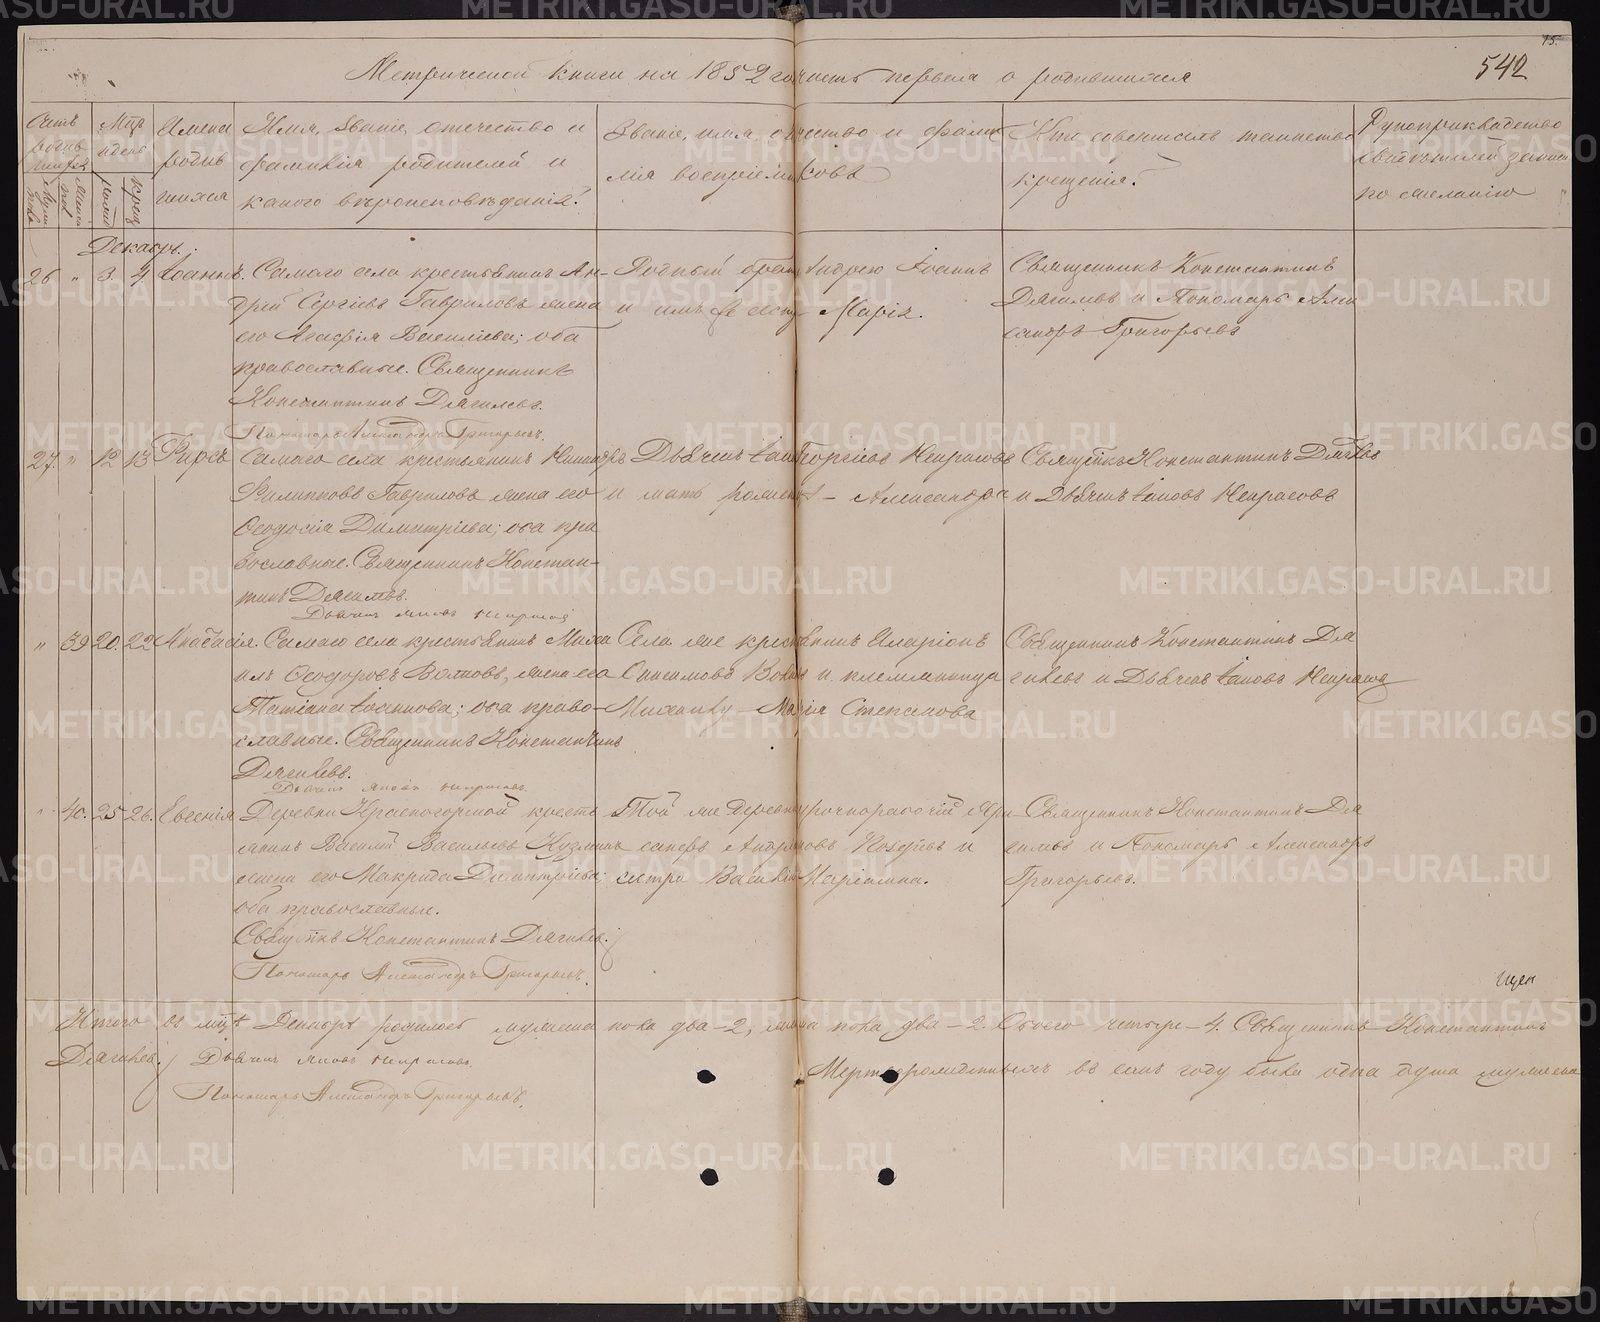 75.
542
Метрической книги на 1852 годъ часть первая о родившихся
Счетъ родившихся
Мужеска
Женска
Мѣсяцъ и день
рожд
крещ
Имена родившихся
Имя, званіе, отечество и фамилія родителей и какого вѣроисповѣданія.
Званіе, имя, отчество и фамилія воспріемниковъ
Кто совершалъ таинство крещенія.
Рукоприкладство свидѣтелей записи по желанію
Декабрь.
26 " 3. 4. Іоаннъ.
Самаго села крестьянинъ Ан-
дрей Сергіевъ Гавриловъ жена
его Агафія Василіева; оба
православные. Священникъ
Константинъ Дягилевъ.
Пономарь Александръ Григорьевъ.
Родный братъ Андрею Іоаннъ
Марія.
Священникъ Константинъ
Дягилевъ и Пономарь Алек
сандръ Григорьевъ
27. " 12 13 Фирсъ
Самаго села крестьянинъ
Филипповъ Гавриловъ жена его
Ѳеодосія Димитріева; оба пра
вославные. Священникъ Констан-
тинъ Дягилевъ.
Дьячекъ Яковъ Некрасовъ
Дьячекъ Іаковъ Георгіевъ Некрасовъ
и мать Александра
Священникъ Константинъ Дягилевъ
и Дьячекъ Іаковъ Некрасовъ
" 39 20. 22 Анастасія.
Самаго села крестьянинъ Миха
илъ Ѳеодоровъ Волковъ, жена его
Татіана Іоаннова; оба право-
славные. Священникъ Константинъ
Дягилевъ.
Дьячекъ Яковъ Некрасовъ.
Села же крестьянинъ Иларіонъ
и племянница
Михаилу Марія Степанова
Священникъ Константинъ Дя
гилевъ и Дьячекъ Іаковъ Некрасовъ
" 40. 25 26. Евгенія
Деревни Красногорской кресть
янинъ Василій Васильевъ Кузминъ
жена его Макрида Димитріева
оба православные.
Священникъ Константинъ Дягилевъ.
Пономарь Александръ Григорьевъ.
Той же деревни урочнорабочій Але-
ксандръ и
сестра Василію Маріамна.
Священникъ Константинъ Дя
гилевъ и Пономарь Александръ
Григорьевъ.
Итого въ мѣсяцѣ Декабрѣ родилось мужеска пола два – 2, женска пола два – 2. Обоего четыре – 4. Священникъ Константинъ
Дягилевъ. Дьячекъ Яковъ Некрасовъ.
Мертворожденныхъ въ семъ году была одна душа мужеска
Пономарь Александръ Григорьевъ.